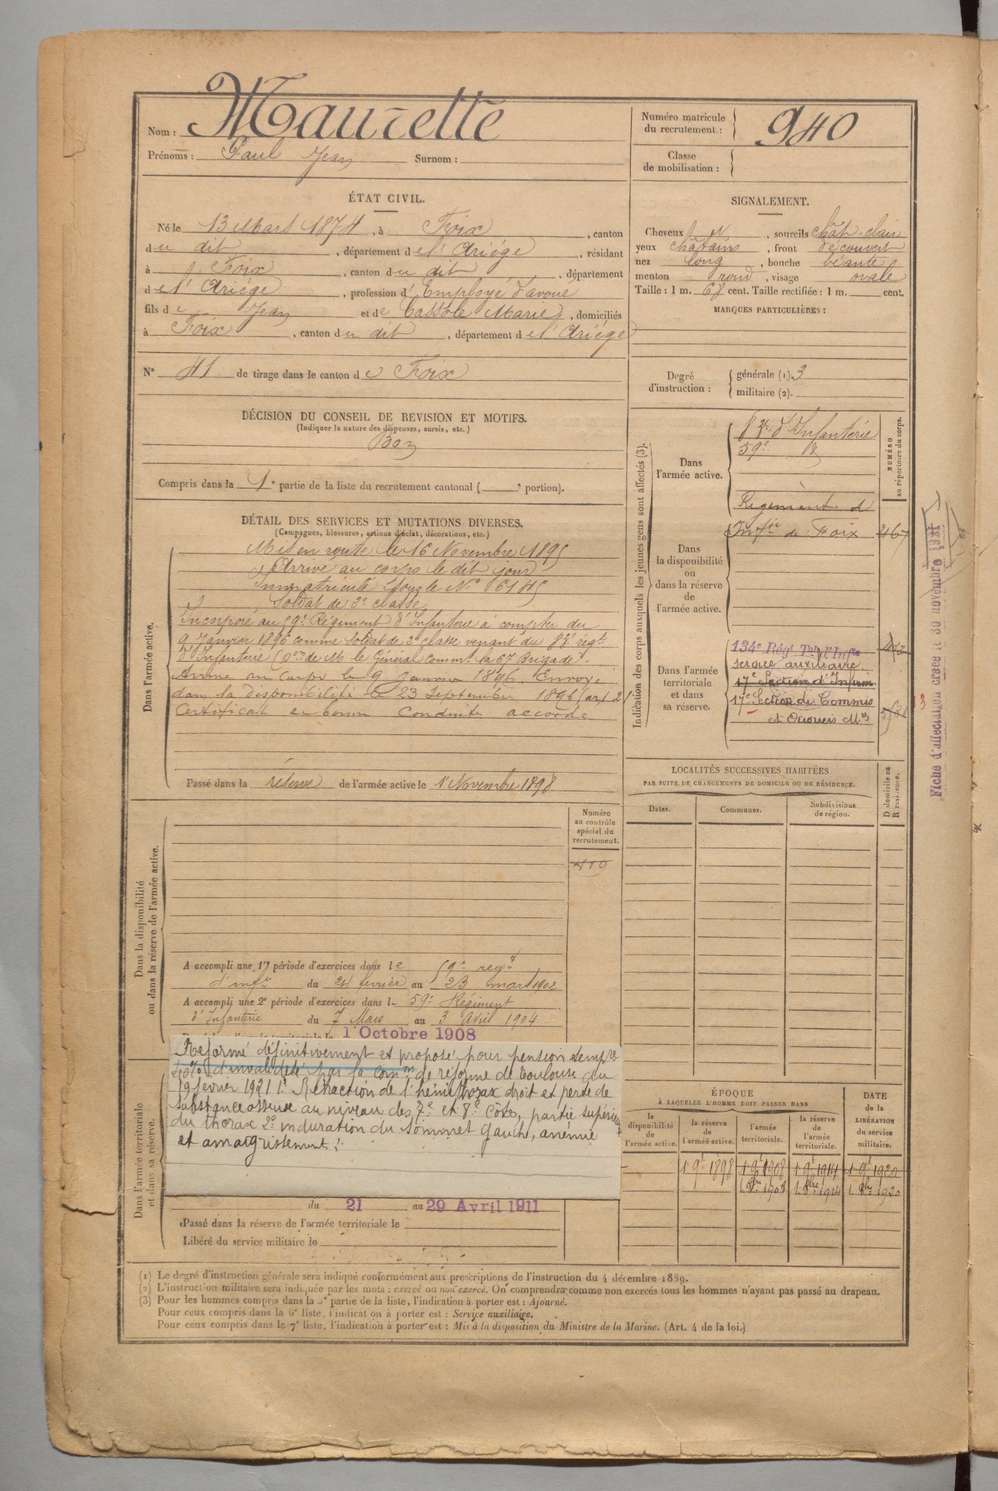 Nom : Maurette
Prénoms : Paul Jean Surnom :
Numéro matricule du recrutement : 940
Classe de mobilisation :
ÉTAT CIVIL.
Né le 13 Mars 1874, à Foix, canton
du dit, département de l'Ariége, résidant
à Foix, canton du dit, département
de l'Ariége, profession d'Employé d'avoué
fils de Jean et de Cassole Marie, domiciliés
à Foix, canton du dit, département de l'Ariége
N° 41 de tirage dans le canton de Foix
SIGNALEMENT.
Cheveux, sourcils chât. clair
yeux châtains, front découvert
nez long, bouche béante
menton rond, visage ovale
Taille : 1 m. 67 cent. Taille rectifiée : 1 m. cent.
MARQUES PARTICULIÈRES :
Degré d'instruction : générale (1) 3
militaire (2).
DÉCISION DU CONSEIL DE REVISION ET MOTIFS.
(Indiquer la nature des dispenses, sursis, etc.)
Bon
Compris dans la 1e partie de la liste du recrutement cantonal ( e portion).
DÉTAIL DES SERVICES ET MUTATIONS DIVERSES.
(Campagnes, blessures, actions d'éclat, décorations, etc.)
Dans l'armée active.
Mis en route le 16 Novembre 1895
Arrivé au corps le dit jour
Immatriculé sous le N°
Soldat de 2e classe
Incorporé au 59e Régiment d'Infanterie à compter du
9 Janvier 1896 comme soldat de 2e classe venant du 87e régt
d'Infanterie (On de M. le Général commt la 67 Brigade).
Arrivé au Corps le 9 Janvier 1896. Envoyé
dans la Disponibilité le 23 Septembre 1896 (art 21
Certificat de bonne Conduite accordé
Passé dans la réserve de l'armée active le 1 Novembre 1898
Indication des corps auxquels les jeunes gens sont affectés (3).
NUMÉRO au répertoire du corps.
Dans l'armée active.
d'Infanterie
59e
Dans la disponibilité ou dans la réserve de l'armée active.
Régiment d
Infie de Foix 467
Dans l'armée territoriale et dans sa réserve.
134e Régt Tal d'Infie
service auxiliaire
17e Section d'Infirm
17e Section de Commis
et Ouvriers Mres
Fiche d'affectation créée le 30 novembre
LOCALITÉS SUCCESSIVES HABITÉES
PAR SUITE DE CHANGEMENTS DE DOMICILE OU DE RÉSIDENCE.
Dates. Communes. Subdivisions de région. D domicile ou R résidence.
Numéro au contrôle spécial du recrutement.
Dans la disponibilité ou dans la réserve de l'armée active.
A accompli une 1re période d'exercices dans le 59e régt
d'infie du 24 février au 23 mars 1902
A accompli une 2e période d'exercices dans le 59e Régiment
d'Infanterie du 7 Mars au 3 Avril 1904
1 Octobre 1908
Réformé définitivement et proposé pour pension temp
d'invalidité par la comon de réforme de Toulouse du
19 février 1921 1° Rétraction de l'hémithorax droit et perte de
substance osseuse au niveau des 7e et 8e Côtes, partie supérieure
du thorax 2° induration du sommet gauche, anémie
et amaigrissement.
Dans l'armée territoriale et dans sa réserve.
du 21 au 29 Avril 1911
Passé dans la réserve de l'armée territoriale le
Libéré du service militaire le
ÉPOQUE
A LAQUELLE L'HOMME DOIT PASSER DANS
la disponibilité de l'armée active. la réserve de l'armée active. l'armée territoriale. la réserve de l'armée territoriale.
DATE de la LIBÉRATION du service militaire.
1 9e 1898 1 9e 1908 1 9e 1914 1 9e 1920
1 8bre 1908 1 8bre 1914 1 8bre 1920
(1) Le degré d'instruction générale sera indiqué conformément aux prescriptions de l'instruction du 4 décembre 1889.
(2) L'instruction militaire sera indiquée par les mots : exercé ou non exercé. On comprendra comme non exercés tous les hommes n'ayant pas passé au drapeau.
(3) Pour les hommes compris dans la 5e partie de la liste, l'indication à porter est : Ajourné.
Pour ceux compris dans la 6e liste, l'indication à porter est : Service auxiliaire.
Pour ceux compris dans la 7e liste, l'indication à porter est : Mis à la disposition du Ministre de la Marine. (Art. 4 de la loi.)